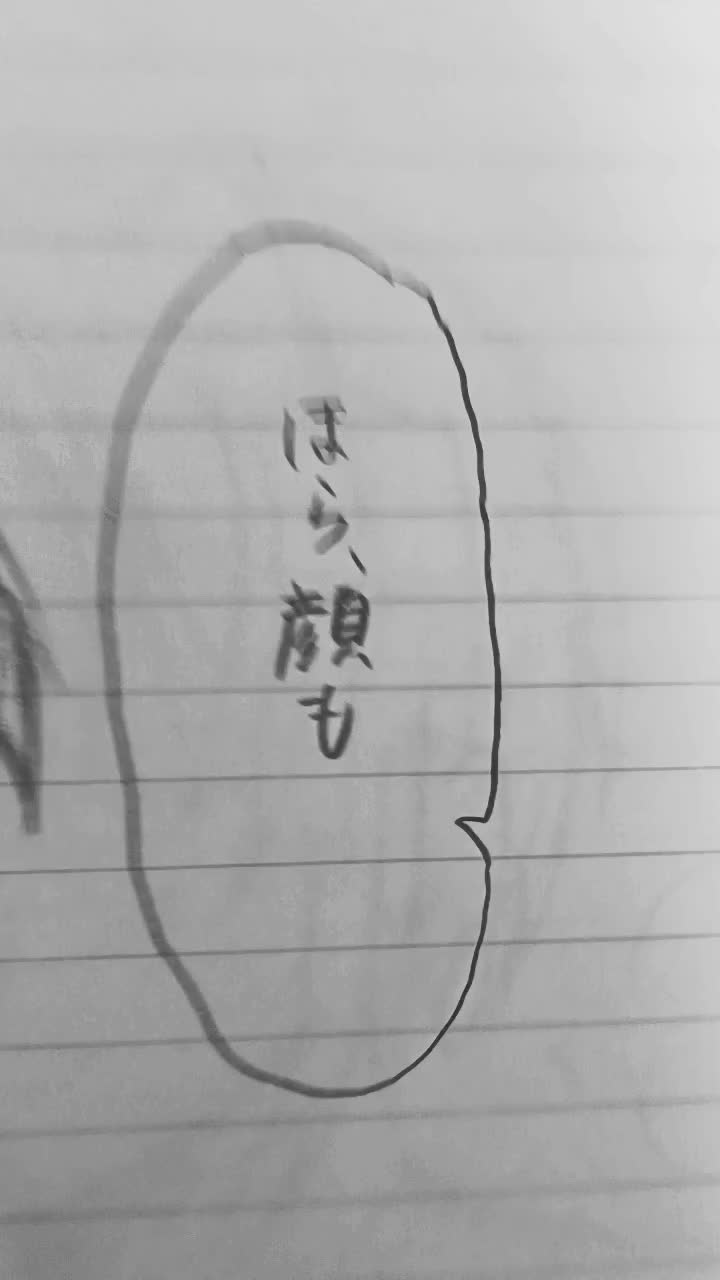 ほら、顔も